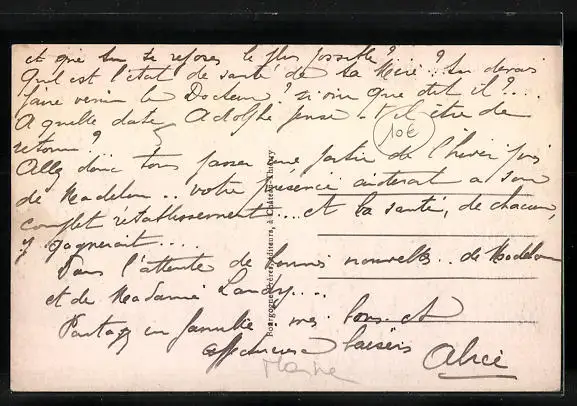 et que tu te reposes le plus possible? ...?
Quel est l'état de santé de ta Mère.. tu devrais
faire venir le Docteur? sinon que dit-il?...
A quelle date, Adolphe pense-t-il être de
retour?
10€
Allez donc tous passer une partie de l'hiver près
de Madelon... votre présence aiderait à son
complet rétablissement.... et la santé, de chacun,
y gagnerait....
Dans l'attente de bonnes nouvelles.. de Madelon
et de Madame Landry...
Partagez en famille, mes bons et
affectueux baisers Alice
Marne
Bourgogne Frères, éditeurs, à Château-Thierry